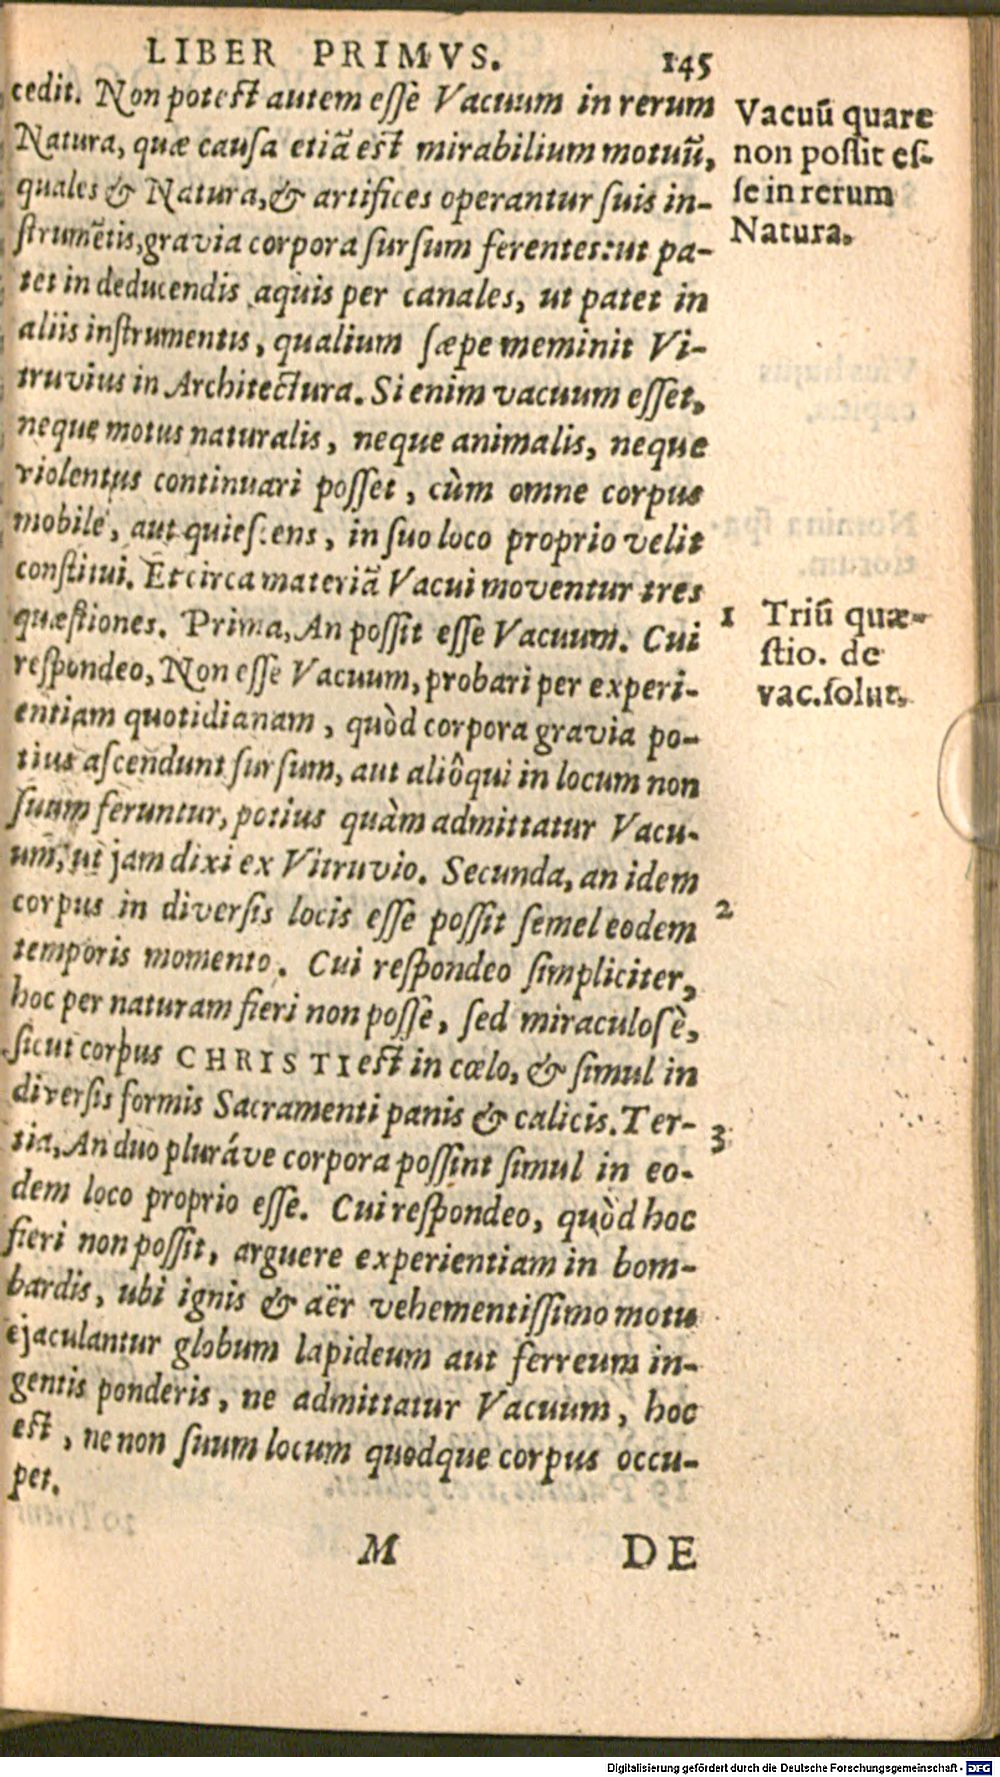 LIBER PRIMVS. 145
cedit. Non potest autem essè Vacuum in rerum
Natura, quæ causa etiã est mirabilium motuũ,
quales & Natura, & artifices operantur suis in-
strumẽtis, gravia corpora sursum ferentes: ut pa-
tet in deducendis aquis per canales, ut patet in
aliis instrumentis, qualium sæpe meminit Vi-
truvius in Architectura. Si enim vacuum esset,
neque motus naturalis, neque animalis, neque
violentus continuari posset, cùm omne corpus
mobile, aut quiescens, in suo loco proprio velit
constitui. Et circa materiã Vacui moventur tres
quæstiones. Prima, An possit esse Vacuum. Cui
respondeo, Non esse Vacuum, probari per experi-
entiam quotidianam, quòd corpora gravia po-
tius ascendunt sursum, aut aliôqui in locum non
suum feruntur, potius quàm admittatur Vacu-
um, ut jam dixi ex Vitruvio. Secunda, an idem
corpus in diversis locis esse possit semel eodem
temporis momento. Cui respondeo simpliciter,
hoc per naturam fieri non possè, sed miraculosè,
sicut corpus CHRISTI est in cœlo, & simul in
diversis formis Sacramenti panis & calicis. Ter-
tia, An duo pluráve corpora possint simul in eo-
dem loco proprio esse. Cui respondeo, quòd hoc
fieri non possit, arguere experientiam in bom-
bardis, ubi ignis & aër vehementissimo motu
ejaculantur globum lapideum aut ferreum in-
gentis ponderis, ne admittatur Vacuum, hoc
est, ne non suum locum quodque corpus occu-
pet.
M DE
Vacuũ quare
non possit es-
se in rerum
Natura.
1 Triũ quæ-
stio. de
vac. solut.
2
3
Digitalisierung gefördert durch die Deutsche Forschungsgemeinschaft - DFG